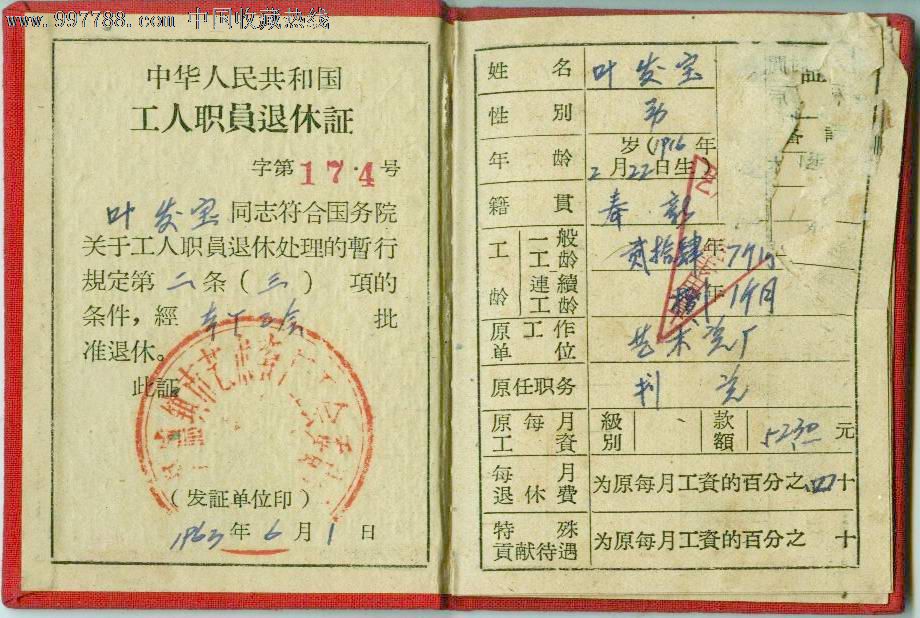 www.997788.com 中国收藏热线
中华人民共和国
工人职員退休証
字第174号
叶发宝同志符合国务院
关于工人职員退休处理的暫行
規定第二条(三)項的
条件,經 批
准退休。
此証
(发証单位印)
1963年6月1日
姓名 叶发宝
性别 男
年龄 岁(1916年
2月22日生)
籍貫 奉新
工龄 一般工龄 贰拾肆年7个月
連續工龄 年1个月
原工作单位 艺术瓷厂
原任职务 利瓷
原每月工資 級别 款額 5230元
每月退休費 为原每月工資的百分之四十
特殊貢献待遇 为原每月工資的百分之 十